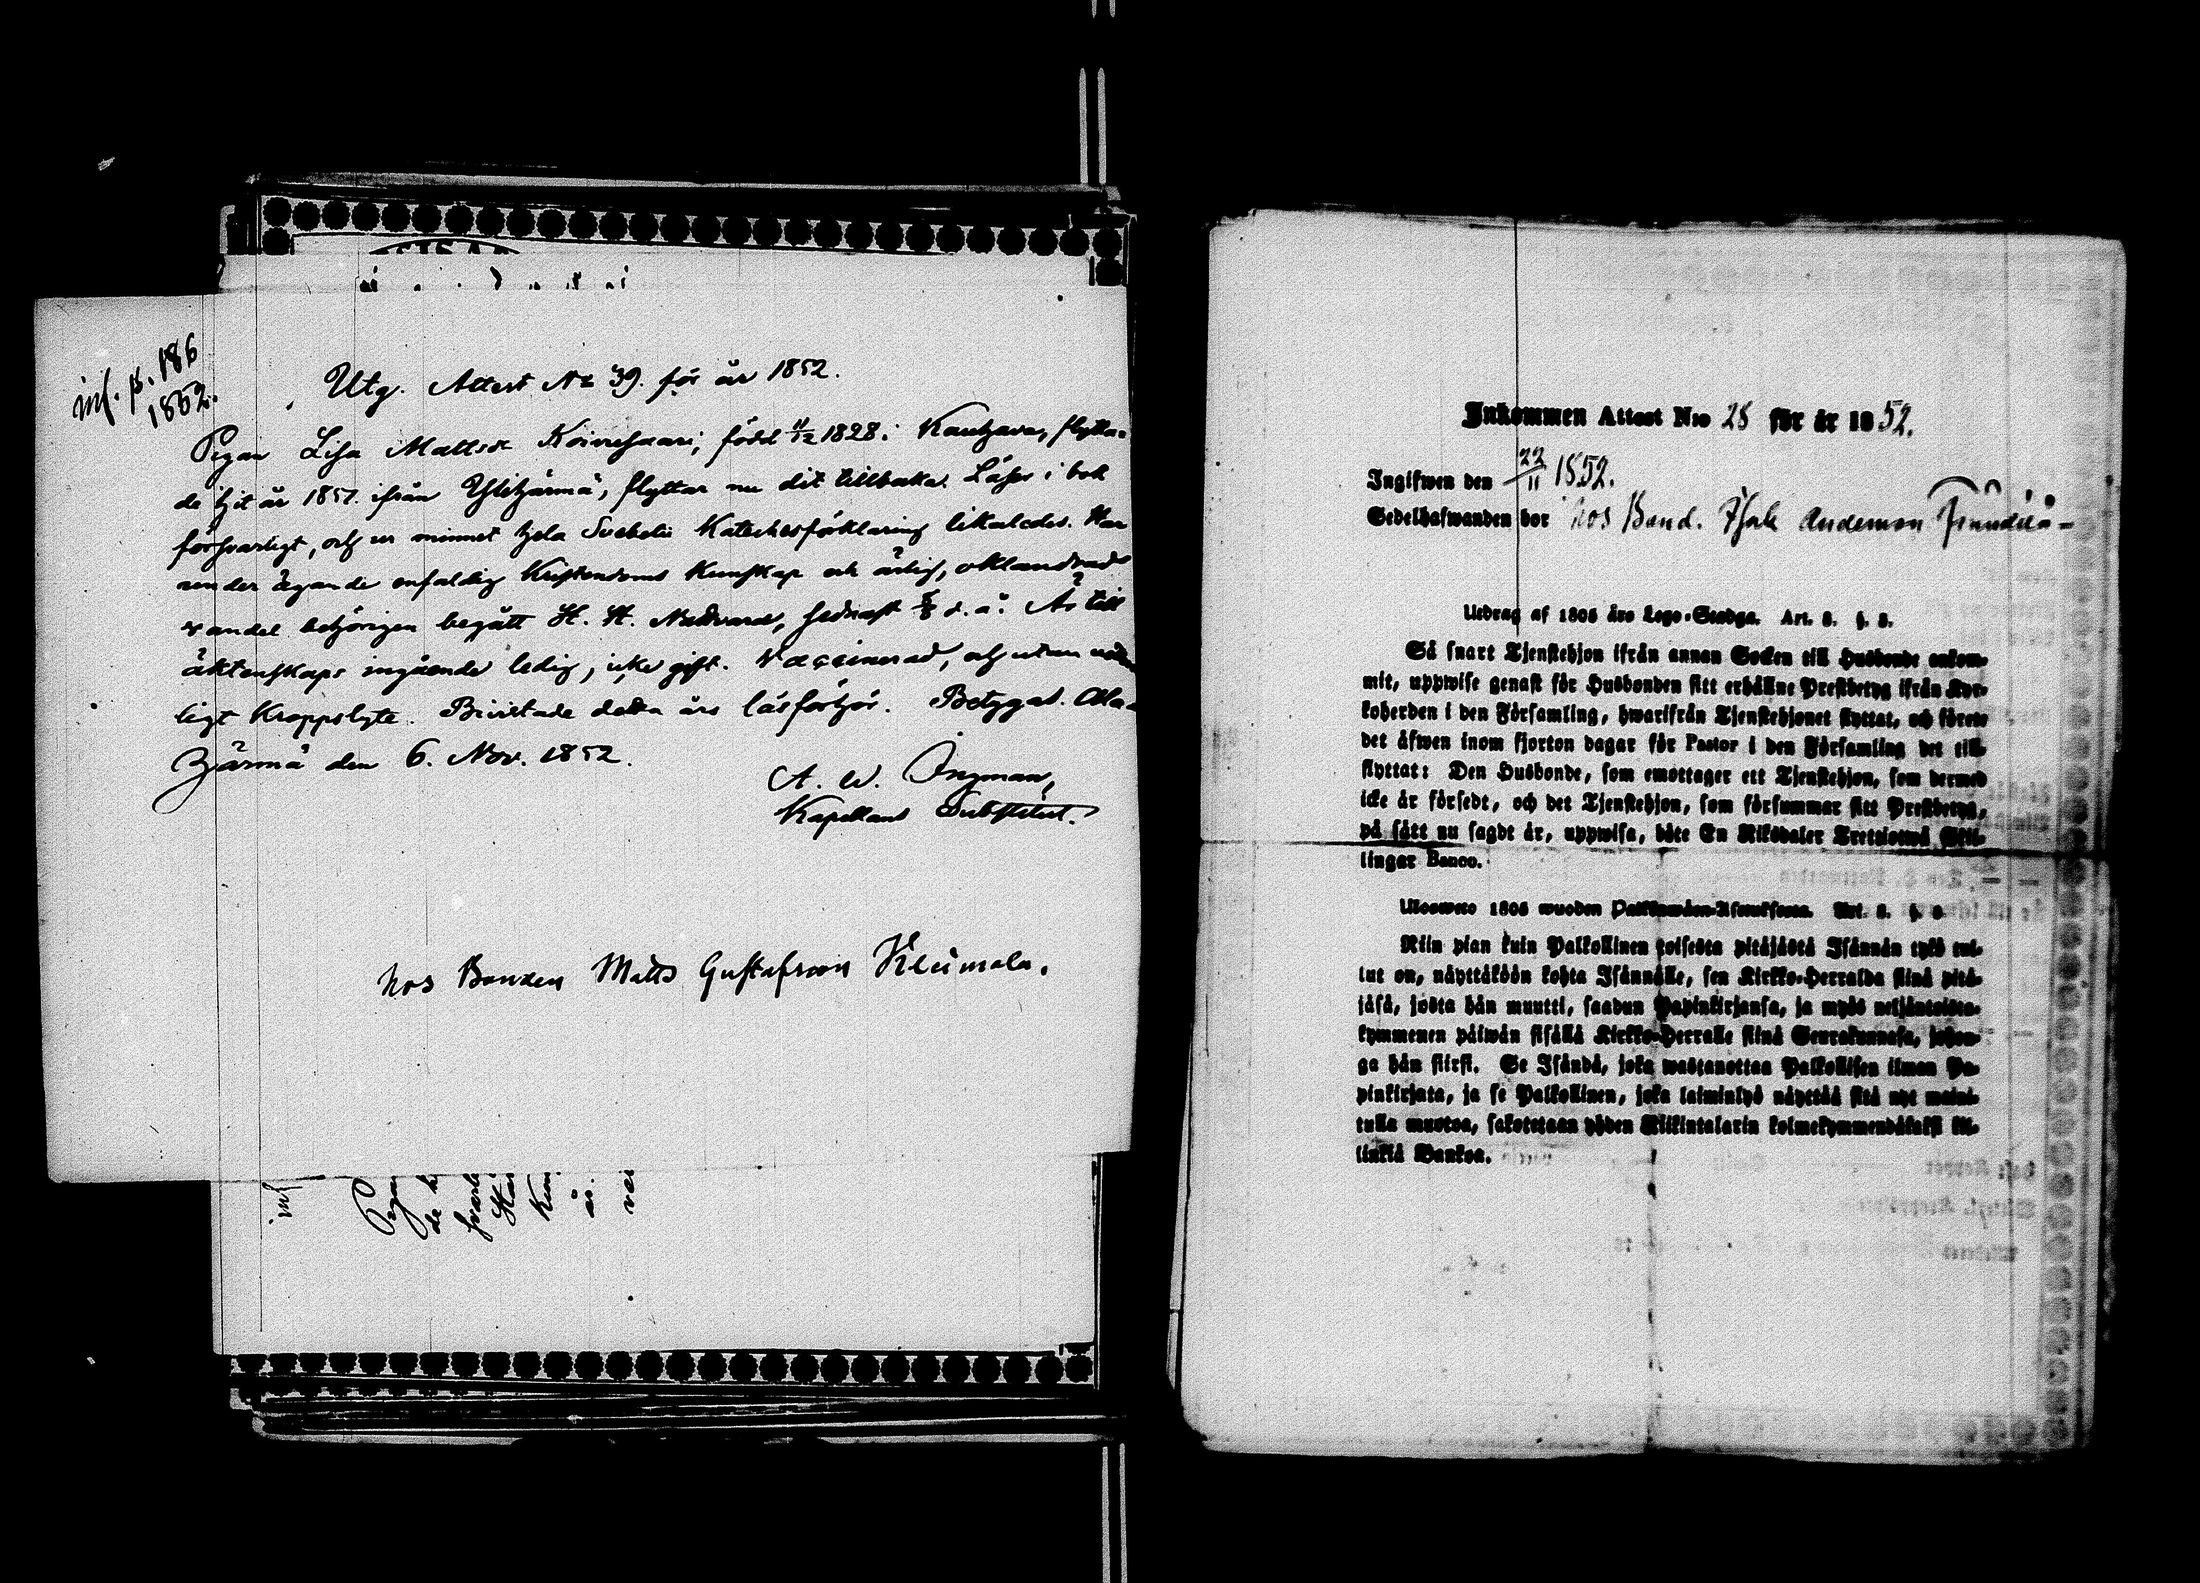 inf. p. 186
1852.
Utg. Attest No 39. för år 1852.
Pigan Lisa Mattsdr Koivusaari, född 11/12 1828 i Kauhava, flytta-
de hit år 1851. ifrån Ylihärmä, flyttar nu dit tillbaka. Läser i bok
försvarligt, och ur minnet hela Svebelii Katechesförklaring likaledes. Har
under ägande enfaldig Kristendoms Kunskap och ärlig, oklandrad
vandel behörigen begått H. H. Nattvard, sednast d. å. Är till
äktenskaps ingående ledig, icke gift. Vaccinerad, och utan
ligt Kroppslyte. Bivistade detta års läsförhör. Betygat. Ala-
Härmä den 6. Nov. 1852.
A. W. Ingman,
Kapellans Substitut.
hos Bonden Matts Gustafsson Kleimola.
Pigan
de h
svarli
Har
Kun
är
Inkommen Attest N:o 28 för år 1852.
Ingifwen den 22/11 1852.
Sedelhafwanden bor hos Bond. Isak Andersson
Utdrag af 1805 års Lego-Stadga. Art. 8. §. 8.
Så snart Tjenstehjon ifrån annan Socken till Husbonde ankom-
mit, uppwise genast för Husbonden sitt erhållne Prestbetyg ifrån Kyr-
koherden i den Församling, hwarifrån Tjenstehjonet flyttat, och förete
det äfwen inom fjorton dagar för Pastor i den Församling det till-
flyttat: Den Husbonde, som emottager ett Tjenstehjon, som dermed
icke är försedt, och det Tjenstehjon, som försummar sitt Prestbetyg,
på sätt nu sagdt är, uppwisa, böte En Riksdaler Trettiotwå Skil-
lingar Banco.
Ulosweto 1805 wuoden Palkkawäen-Asetuksesta. Art. 8. §. 8.
Niin pian kuin Palkollinen toisesta pitäjästä Isännän tykö tul-
lut on, näyttäköön kohta Isännälle, sen Kirkko-Herralda siinä pitä-
jäsä, josta hän muutti, saadun Papinkirjansa, ja myös neljäntoista-
kymmenen päiwän sisällä Kirkko-Herralle siinä Seurakunnasa, johon-
ga hän siirsi. Se Isändä, joka wastanottaa Palkollisen ilman Pa-
pinkirjata, ja se Palkollinen, joka laiminlyö näyttää sitä nyt maini-
tulla muotoa, sakotetaan yhden Riikintalarin kolmekymmendäkaksi kil-
linkiä Bankoa.